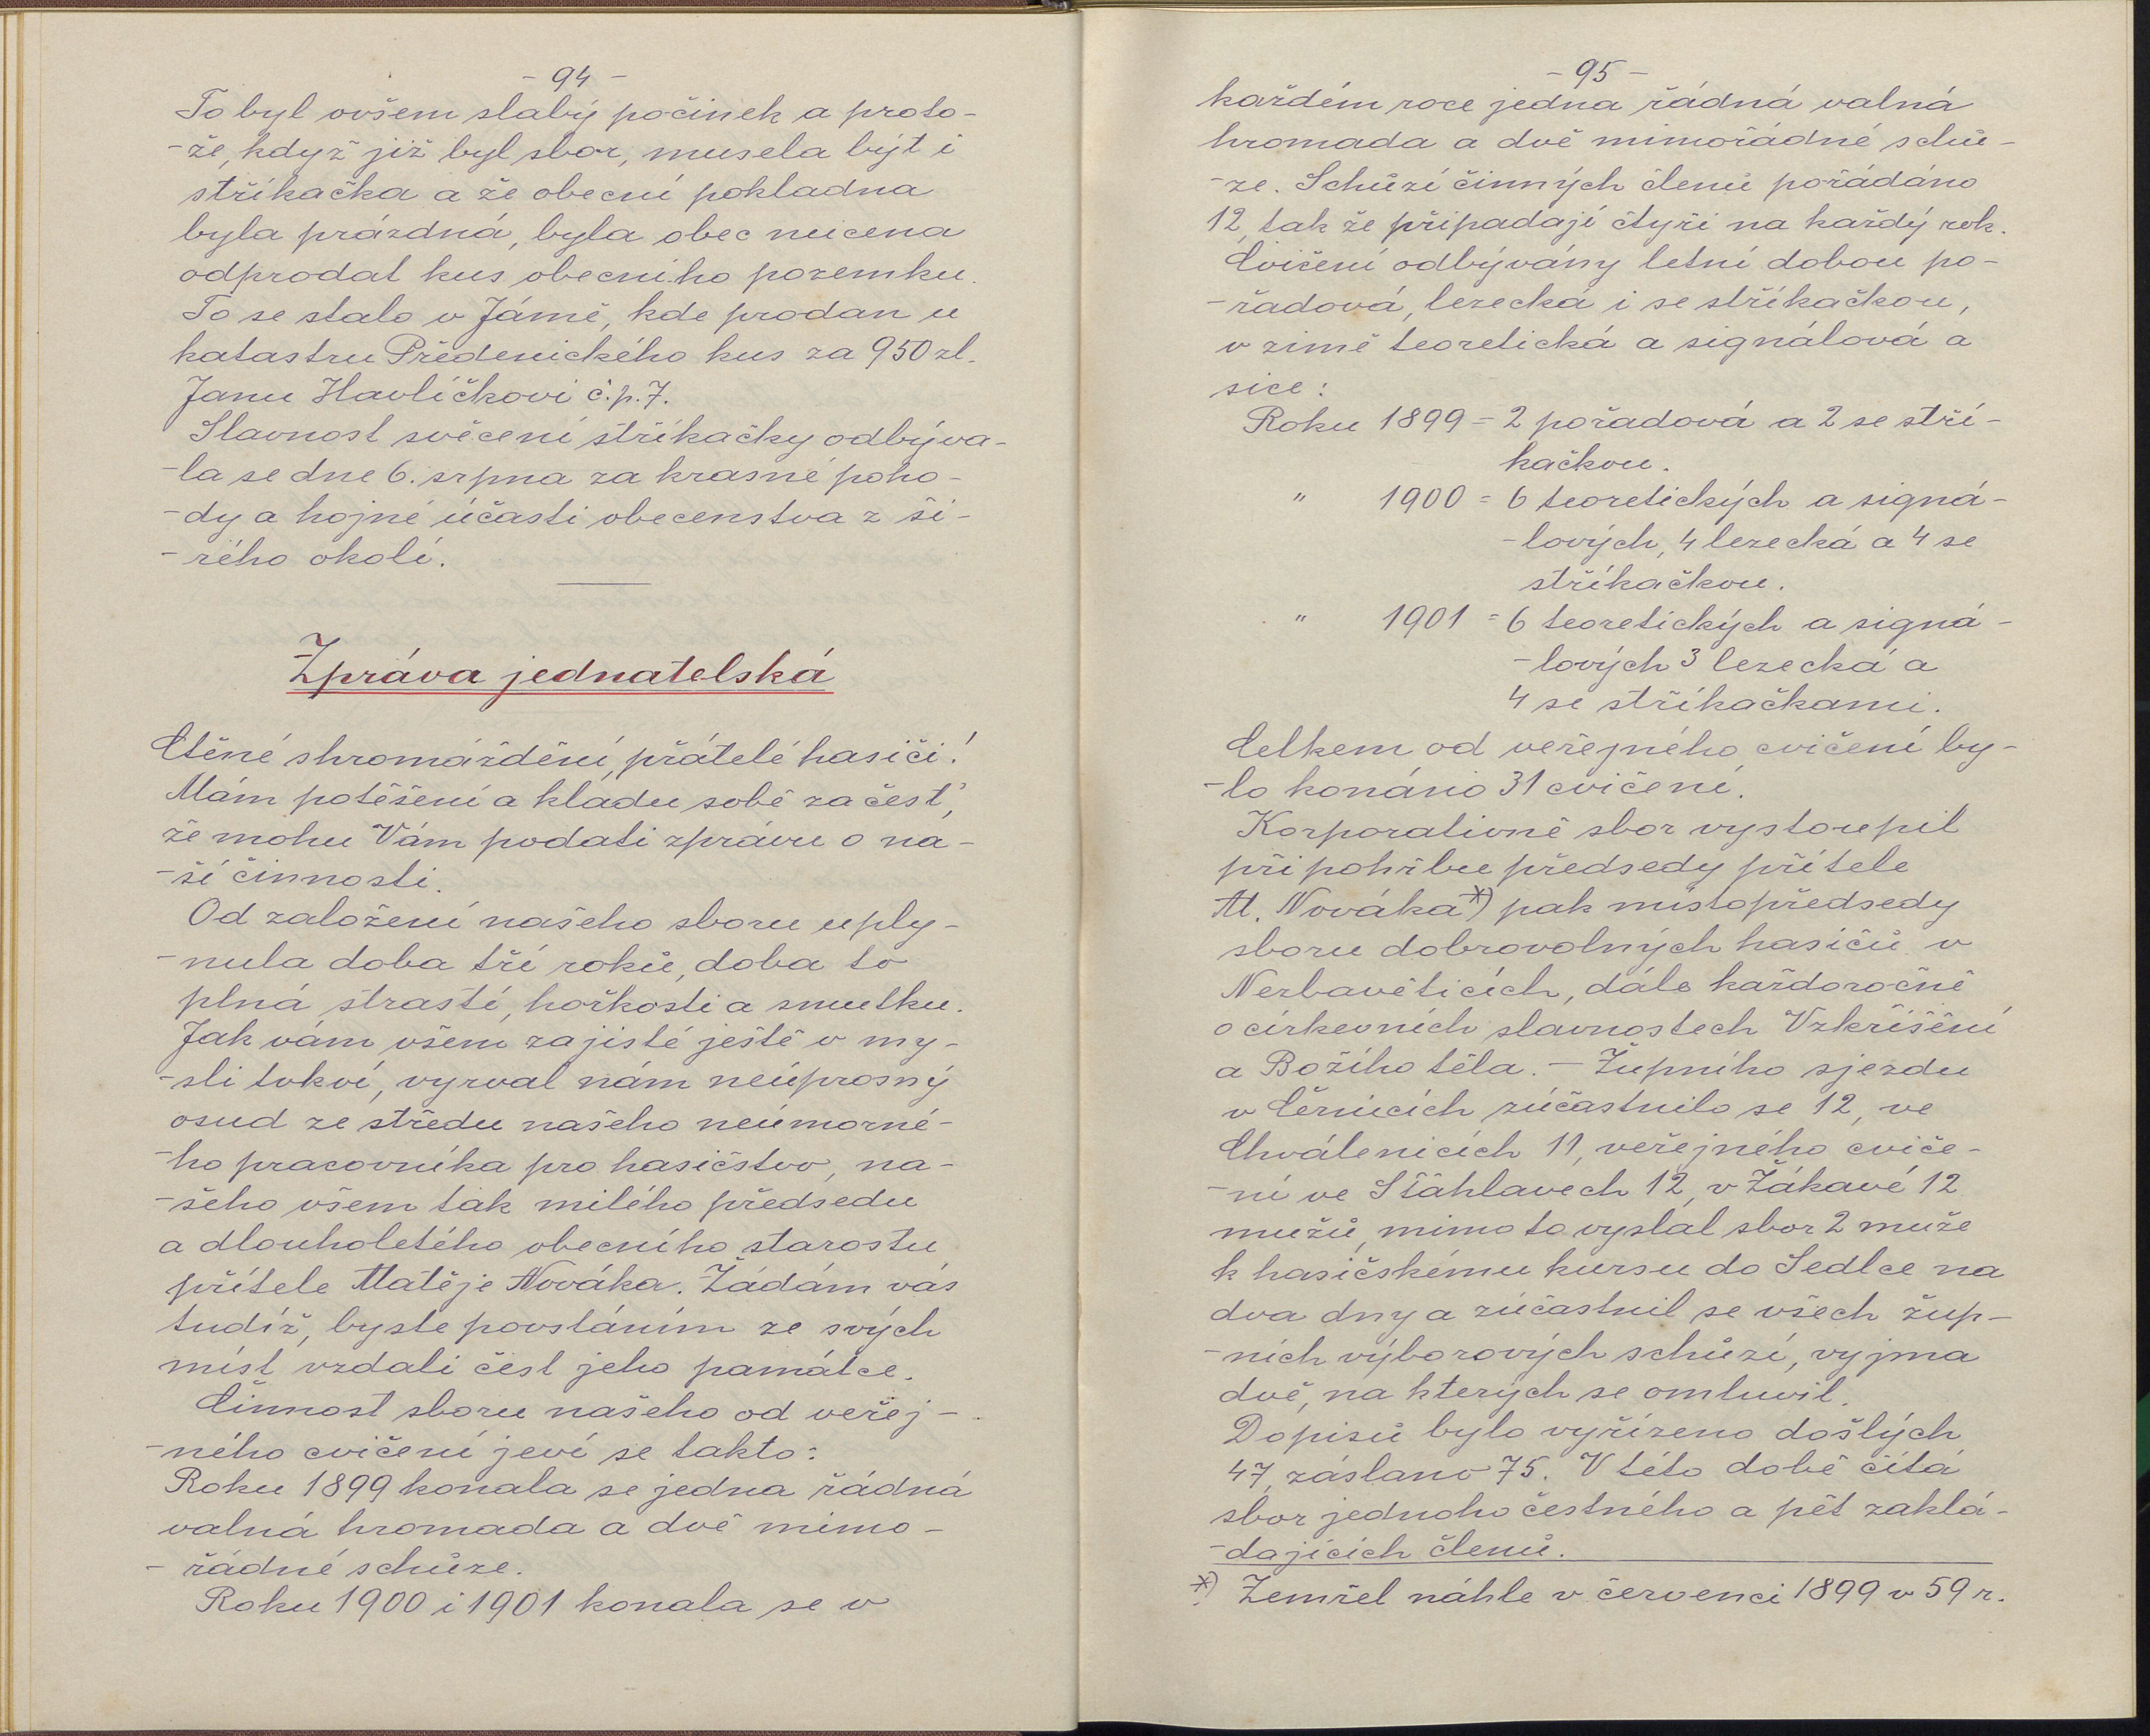 - 94 -
To byl ovšem slabý počinek a proto-
-že, když již byl sbor, musela býti
stříkačka a že obecní pokladna
byla prázdná, byla obec nucena
odprodat kus obecního pozemku.
To se stalo v Jámě, kde prodan u
katastru Předenického kus za 950 zl.
Janu Havlíčkovi č.p. 7.
Slavnost svěcení stříkačky odbýva-
-la se dne 6. srpna za krasné poho-
-dy a hojné účasti obecenstva z ši-
-rého okolí.
Zpráva jednatelská
Ctěné shromáždění, přátelé hasiči!
Mám potěšení a kladu sobě za čest,
že mohu Vám podati zprávu o na-
-ší činnosti.
Od založení našeho sboru uply-
-nula doba tří roků, doba to
plná strastí, hořkosti a smutku.
Jak vám všem zajisté ještě v my-
-sli tokví, vyrval nám neúprosný
osud ze středu našeho neúmorné-
-ho pracovníka pro hasičstvo, na-
-šeho všem tak milého předsedu
a dlouholetého obecního starostu
přítele Matěje Nováka. Žádám vás
tudíž, byste povstáním ze svých
míst vzdali čest jeho památce.
Činnost sboru našeho od veřej-
-ného cvičení jeví se takto:
Roku 1899 konala se jedna řádná
valná hromada a dvě mimo-
- řádné schůze.
Roku 1900 i 1901 konala se v
- 95 -
každém roce jedna řádná valná
hromada a dvě mimořádné schů-
-ze. Schůzí činných členů pořádáno
12, tak že připadají čtyři na každý rok.
Cvičení odbývány letní dobou po-
-řadová, lezecká i se stříkačkou,
v zimě teoretická a signálová a
sice:
Roku 1899 = 2 pořadová a 2 se stří-
kačkou.
" 1900 = 6 teoretických a signá-
-lových, 4 lezecká a 4 se
stříkačkou.
" 1901 = 6 teoretických a signá-
-lových 3 lezecká a
4 se stříkačkami.
Celkem od veřejného cvičení by-
-lo konáno 31 cvičení.
Korporativně sbor vystoupil
při pohřbu předsedy přítele
M. Nováka *) pak místopředsedy
sboru dobrovolných hasičů v
Nezbavěticích, dále každoročně
o církevních slavnostech Vzkříšení
a Božího těla. - Župního sjezdu
v Černicích zúčastnilo se 12, ve
Chválenicích 11, veřejného cviče-
-ní ve Sťáhlavech 12, v Žákavé 12
mužů, mimo to vyslal sbor 2 muže
k hasičskému kursu do Sedlce na
dva dny a zúčastnil se všech žup-
-ních výborových schůzí, vyjma
dvě, na kterých se omluvil.
Dopisů bylo vyřízeno došlých
47, zásláno 75. V této době čítá
sbor jednoho čestného a pět zaklá-
-dajících členů.
*) Zemřel náhle v červenci 1899 v 59 r.